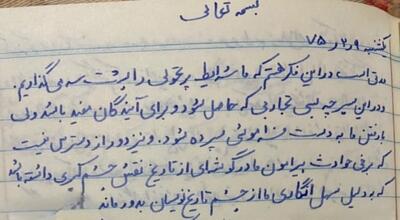 بسمه تعالی
یکشنبه ۷۵/۲/۹
مدتی است در این فکر هستم که ما شرایط پر تحولی را پشت سر می گذاریم.
و در این سیر چه بسی تجاربی که حاصل شود و برای آیندگان مفید باشد ولی
با رفتن ما به دست فراموشی سپرده شود. و نیز دور از دسترس نیست
که برخی حوادث پیرامون ما در گوشه ای از تاریخ نقش چشم گیری داشته باشد
که به دلیل سهل انگاری ما از چشم تاریخ نویسان به دور ماند